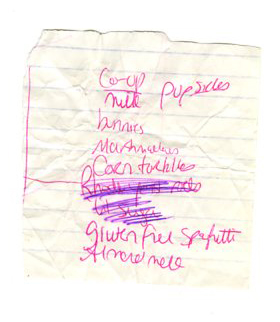 Co-op
milk popsicles
bunnies
Marshmallows
Corn tortillas
gluten free Spaghetti
Almond milk